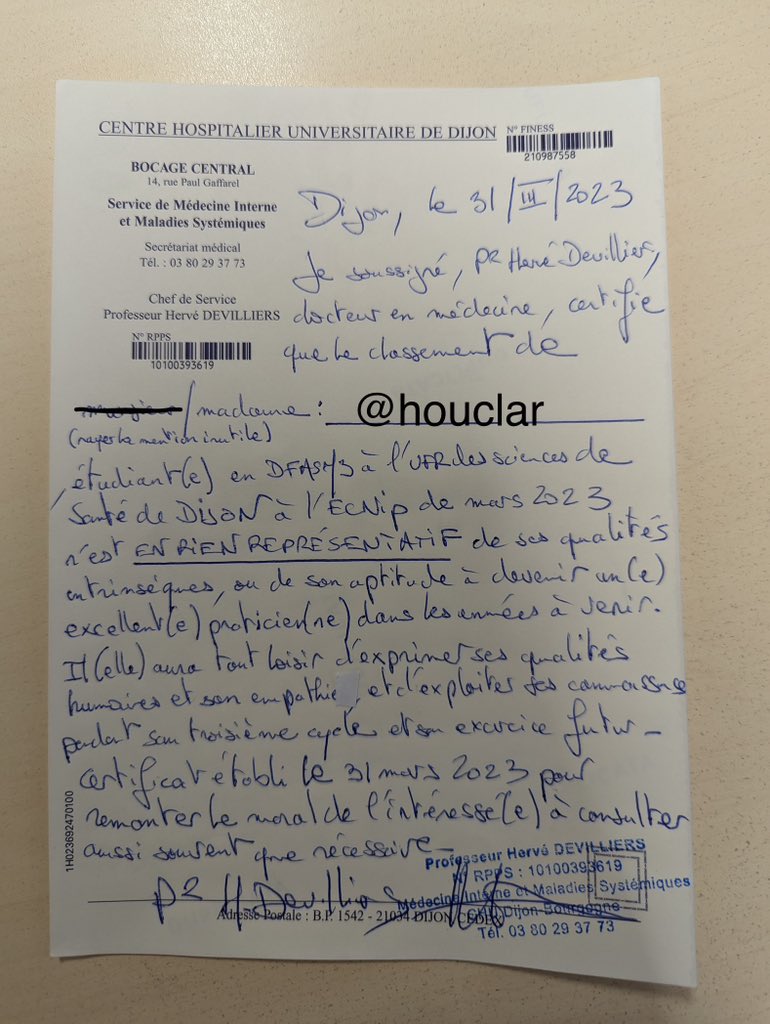 CENTRE HOSPITALIER UNIVERSITAIRE DE DIJON
N° FINESS
210987558
BOCAGE CENTRAL
14, rue Paul Gaffarel
Service de Médecine Interne
et Maladies Systémiques
Secrétariat médical
Tél. : 03 80 29 37 73
Chef de Service
Professeur Hervé DEVILLIERS
N° RPPS
10100393619
Dijon, le 31/III/2023
Je soussigné, Pr Hervé Devilliers,
docteur en médecine, certifie
que le classement de
/madame : @houclar
(rayer la mention inutile)
étudiant(e) en DFASM3 à l'UFR des sciences de
Santé de DIJON à l'ECNip de mars 2023
n'est EN RIEN REPRÉSENTATIF de ses qualités
intrinsèques, ou de son aptitude à devenir un(e)
excellent(e) praticien(ne) dans les années à venir.
Il(elle) aura tout loisir d'exprimer ses qualités
humaines et son empathie, et d'exploiter ses connaissances
pendant son troisième cycle et son exercice futur -
Certificat établi le 31 mars 2023 pour
remonter le moral de l'intéressé(e) à consulter
aussi souvent que nécessaire -
Pr H Devilliers
Professeur Hervé DEVILLIERS
N° RPPS : 10100393619
Médecine Interne et Maladies Systémiques
CHU Dijon-Bourgogne
Tél. 03 80 29 37 73
Adresse Postale : B.P. 1542 - 21034 DIJON CEDEX
1H023692470100